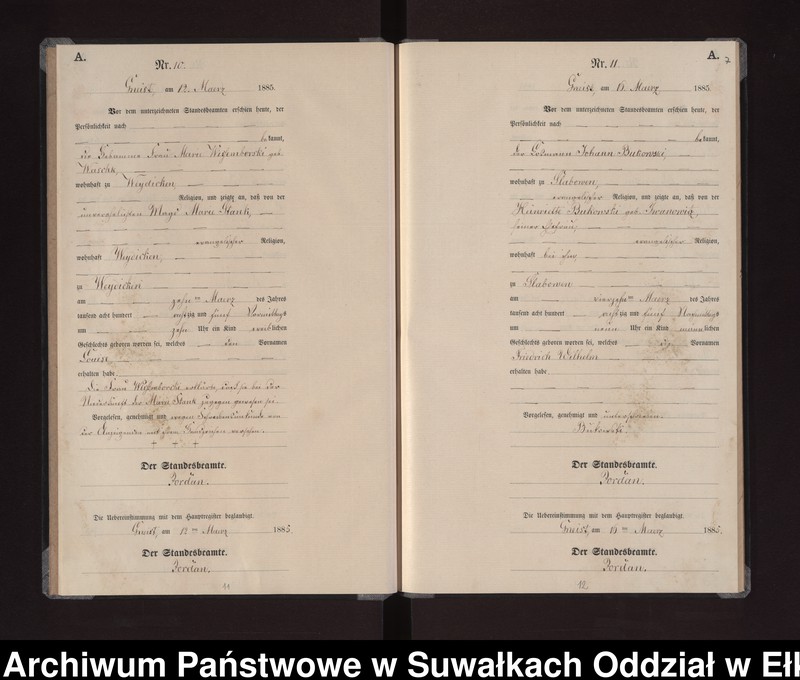 A.
Nr. 10.
Gneist, am 12. Maerz 1885.
Vor dem unterzeichneten Standesbeamten erschien heute, der
Persönlichkeit nach
bekannt,
die Hebamme Frau Marie geb.
wohnhaft zu Weydicken,
Religion, und zeigte an, daß von der
unverehelichten Magd Marie Stank,
evangelischer Religion,
wohnhaft Weydicken,
zu Weydicken
am zehn ten Maerz des Jahres
tausend acht hundert achtzig und fünf Vormittags
um zehn Uhr ein Kind weiblichen
Geschlechts geboren worden sei, welches den Vornamen
Louise
erhalten habe.
Die Frau erklärte, daß sie bei der
Niederkunft der Marie Stank zugegen gewesen sei.
Vorgelesen, genehmigt und wegen Schreibensunkunde von
der Anzeigenden mit ihrem Handzeichen versehen.
+ + +
Der Standesbeamte.
Jordan.
Die Uebereinstimmung mit dem Hauptregister beglaubigt.
Gneist, am 12 ten Maerz 1885.
Der Standesbeamte.
Jordan.
11
A.
7
Nr. 11
Gneist, am 15. Maerz 1885.
Vor dem unterzeichneten Standesbeamten erschien heute, der
Persönlichkeit nach
bekannt,
der Losmann Johann Bukowski,
wohnhaft zu Slabowen,
evangelischer Religion, und zeigte an, daß von der
Henriette Bukowski geb. Iwanowitz,
seiner Ehefrau,
evangelischer Religion,
wohnhaft bei ihm
zu Slabowen
am vierzehn ten Maerz des Jahres
tausend acht hundert achtzig und fünf Nachmittags
um neun Uhr ein Kind männlichen
Geschlechts geboren worden sei, welches die Vornamen
Friedrich Wilhelm
erhalten habe
Vorgelesen, genehmigt und unterschrieben.
Bukowski.
Der Standesbeamte.
Jordan.
Die Uebereinstimmung mit dem Hauptregister beglaubigt.
Gneist, am 15 ten Maerz 1885.
Der Standesbeamte.
Jordan.
12
Archiwum Państwowe w Suwałkach Oddział w Ełk